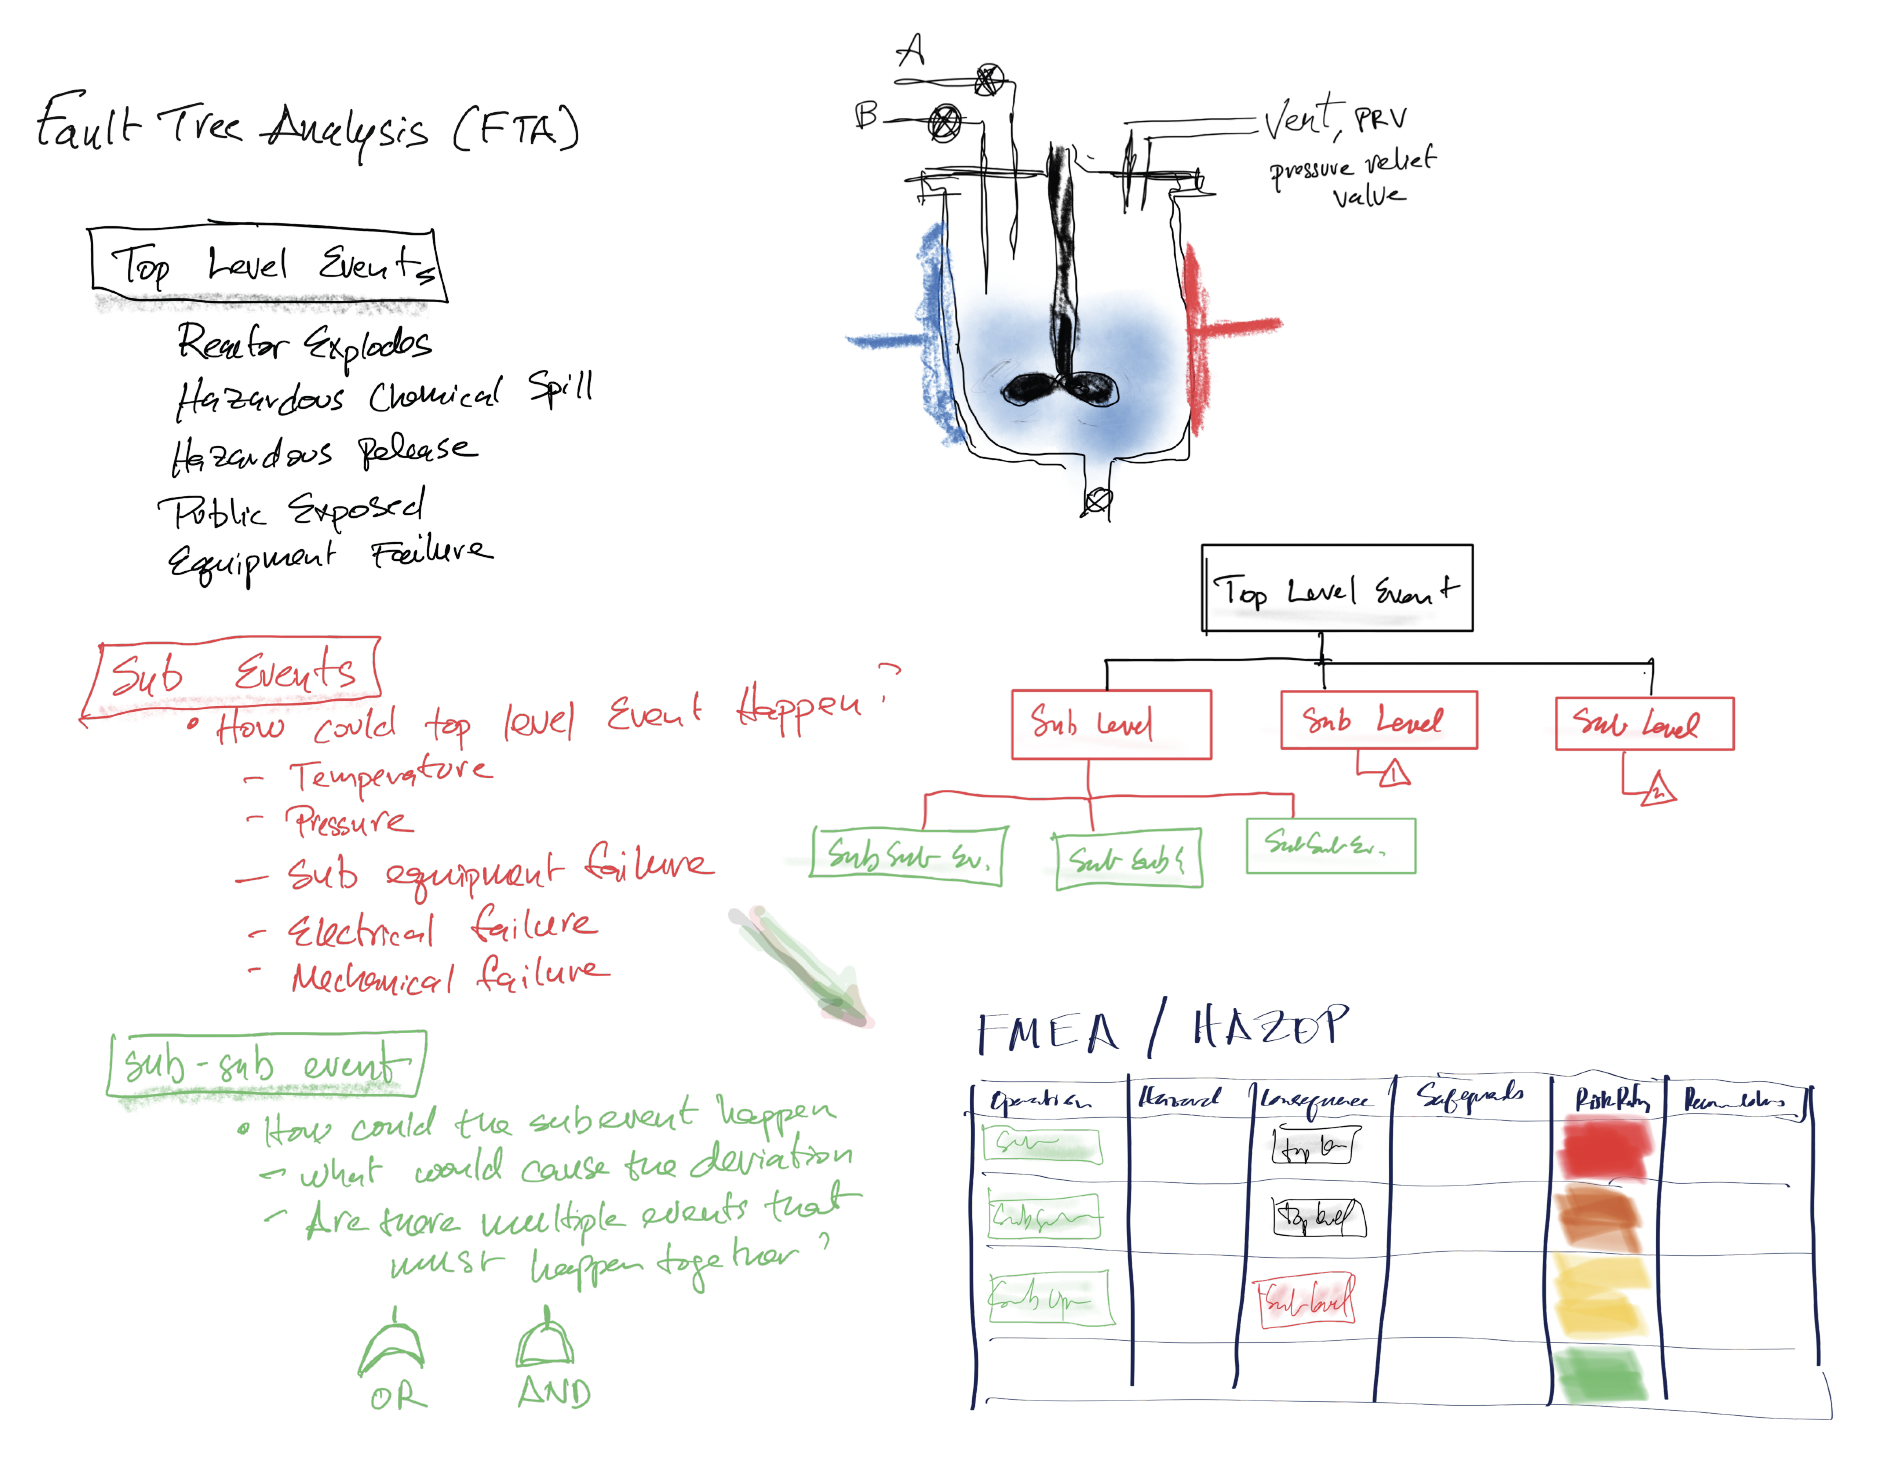 Fault Tree Analysis (FTA)
Top Level Events
Reactor Explodes
Hazardous Chemical Spill
Hazardous Release
Public Exposed
Equipment Failure
Sub Events
• How could top level Event Happen?
- Temperature
- Pressure
- Sub equipment failure
- Electrical failure
- Mechanical failure
sub-sub event
• How could the subevent happen
- what would cause the deviation
- Are there multiple events that
must happen together?
OR
AND
A
B
Vent, PRV
pressure relief
valve
Top Level Event
Sub Level
Sub Level
Sub Level
1
2
Sub Sub Ev.
Sub Sub E
Sub Sub Ev.
FMEA / HAZOP
Operation
Hazard
Consequence
Safeguards
Risk
top
top level
Sub level